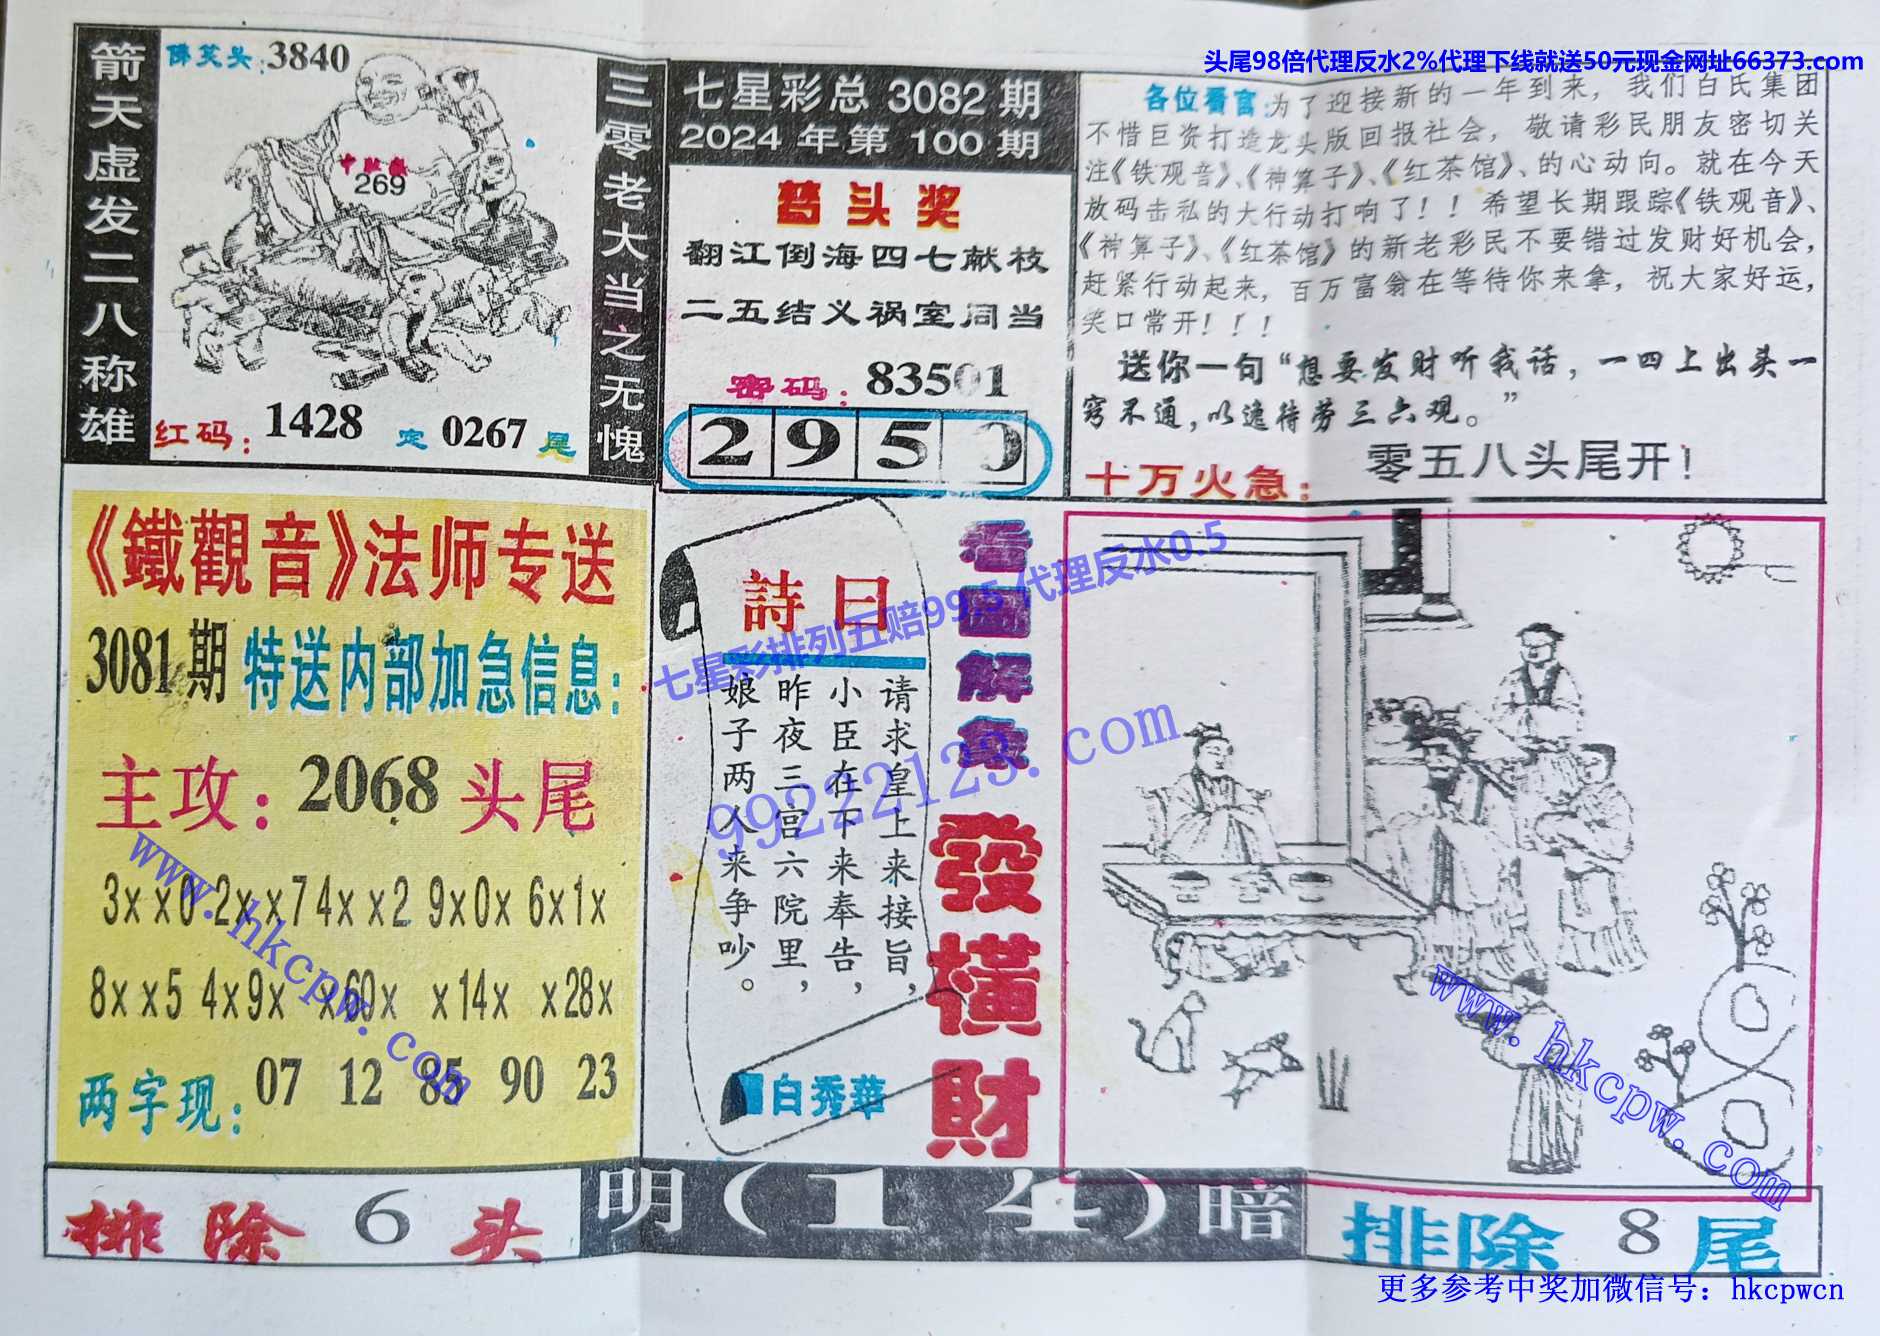 头尾98倍代理反水2%代理下线就送50元现金网址66373.com
箭天虚发二八称雄
佛笑头:3840
269
红码:1428 定0267尾
三零老大当之无愧
七星彩总3082期
2024年第100期
梦头奖
翻江倒海四七献枝
二五结义祸室同当
密码:83501
2950
各位看官:为了迎接新的一年到来，我们白氏集团
不惜巨资打造龙头版回报社会，敬请彩民朋友密切关
注《铁观音》、《神算子》、《红茶馆》、的心动向。就在今天
放码击私的大行动打响了！！希望长期跟踪《铁观音》、
《神算子》、《红茶馆》的新老彩民不要错过发财好机会，
赶紧行动起来，百万富翁在等待你来拿，祝大家好运，
笑口常开！！！
送你一句“想要发财听我话，一四上出头一
窍不通，以逸待劳三六观。”
十万火急:零五八头尾开！
《鐵觀音》法师专送
3081期 特送内部加急信息:
主攻:2068头尾
3xx0 2xx7 4xx2 9x0x 6x1x
8xx5 4x9x x60x x14x x28x
两字现:07 12 85 90 23
詩曰
请求皇上来接旨，
小臣在下来奉告，
昨夜三宫六院里，
娘子两人来争吵。
白秀華
看圖解象
發橫財
七星彩排列五赔99.5 代理反水0.5
99222123.com
www.hkcpw.com
www.hkcpw.com
排除 6 头
明(14)暗
排除 8 尾
更多参考中奖加微信号：hkcpwcn